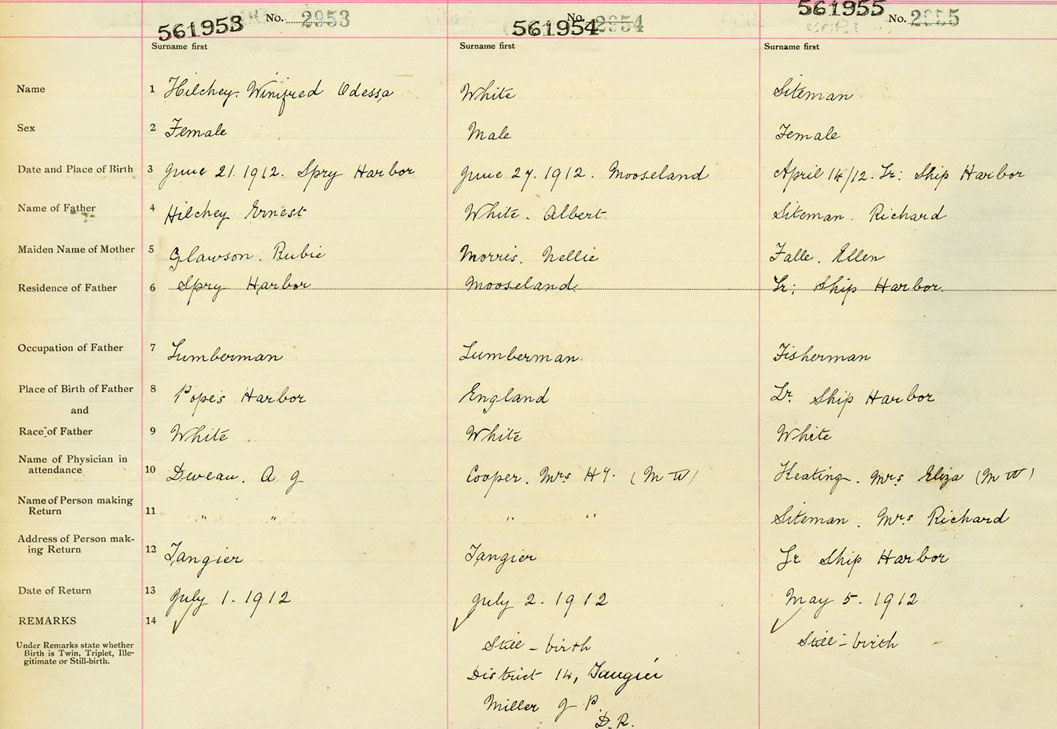 561953 No. 2953 561954 No. 2954 561955 No. 2955
Surname first Surname first Surname first
Name 1 Hilchey. Winifred Odessa White Siteman
Sex 2 Female Male Female
Date and Place of Birth 3 June 21. 1912. Spry Harbor June 27. 1912. Mooseland April 14/12. Lr: Ship Harbor
Name of Father 4 Hilchey Ernest White. Albert Siteman. Richard
Maiden Name of Mother 5 Glawson. Rubie Morris. Nellie Falle. Ellen
Residence of Father 6 Spry Harbor Mooseland. Lr: Ship Harbor.
Occupation of Father 7 Lumberman Lumberman Fisherman
Place of Birth of Father 8 Popes Harbor England Lr. Ship Harbor
and
Race of Father 9 White White White
Name of Physician in
attendance 10 A J Cooper. Mrs Hy. (M W) Keating. Mrs Eliza (M W)
Name of Person making
Return 11 " " " " Siteman. Mrs Richard
Address of Person mak-
ing Return 12 Tangier Tangier Lr Ship Harbor
Date of Return 13 July 1. 1912 July 2. 1912 May 5. 1912
REMARKS 14
Under Remarks state whether
Birth is Twin, Triplet, Ille-
gitimate or Still-birth.
Still-birth Still-birth
District 14, Tangier
Miller J P.
D.R.